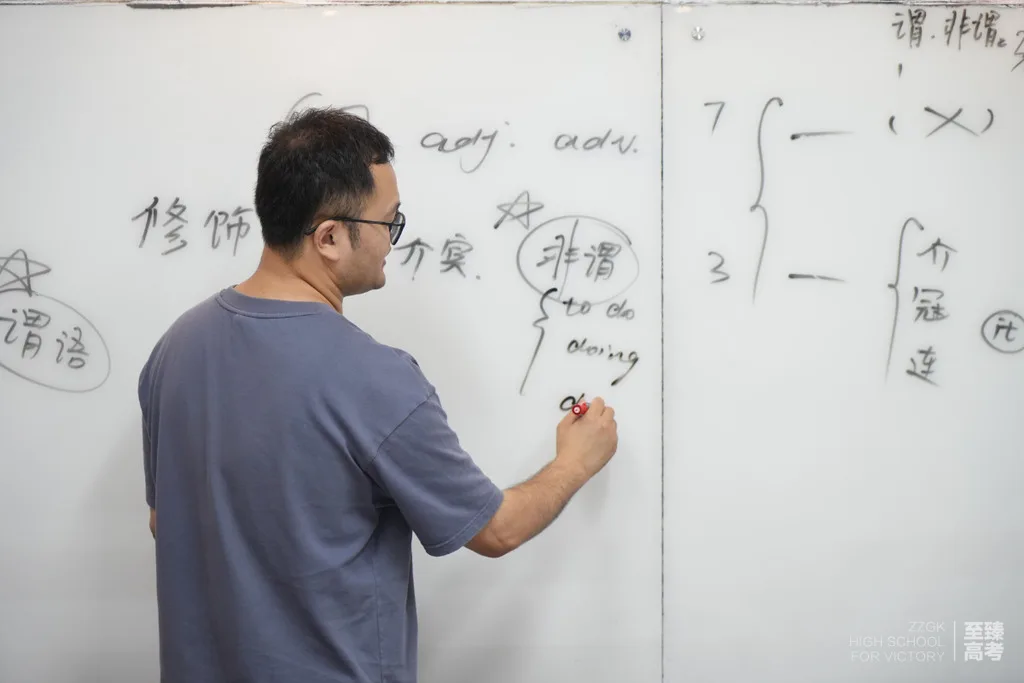 adj. adv.
修饰
介宾.
非谓
to do
doing
d
谓语
谓.非谓。
7 — (X)
3 —
介
冠
连
it
ZZGK
HIGH SCHOOL
FOR VICTORY
至臻
高考